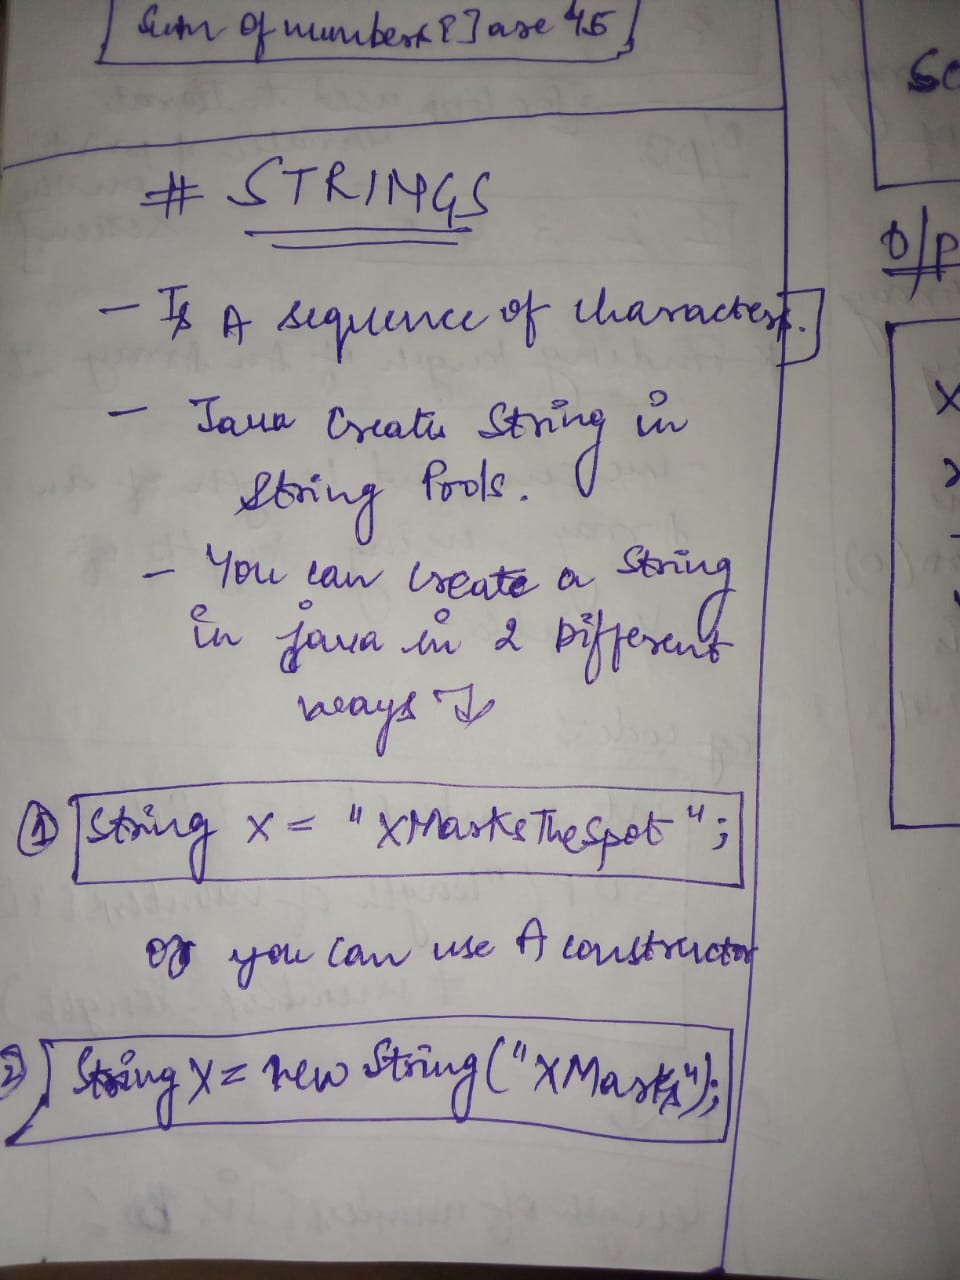 Sum of numbers[] are 45
# STRINGS
- Is A sequence of characters.
- Java Create String in
String Pools.
- You can create a String
in java in 2 Different
ways ↓
① String x = "XMarksTheSpot";
or you can use A constructor
② String X = new String("XMarks");
So
O/P
X